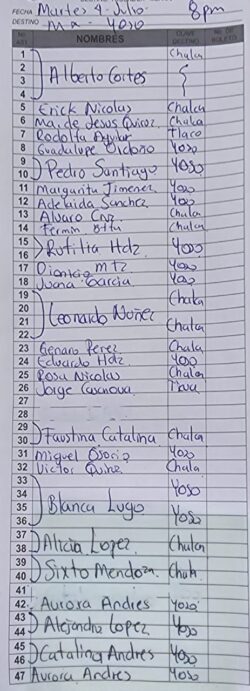 FECHA Martes 1-Julio. 8pm
DESTINO Mx - Yoso
No. NOMBRES CLAVE DESTINO No. DE BOLETO
1 Chalca
2
3 Alberto Cortes
4
5 Erick Nicolas Chalca
6 Ma. de Jesus Quiroz Chalca
7 Rodolfo Aguilar Tlaco
8 Guadalupe Yoso
9
10 Pedro Santiago Yoso
11 Margarita Jimenez Yoso
12 Adelaida Sanchez Yoso
13 Alvaro Cruz Chalca
14 Fermin Chalca
15
16 Rutilia Hdz Yoso
17 Dionicio mtz Yoso
18 Juana Garcia Yoso
19 Chalca
20
21 Leonardo Nuñez
22 Chalca
23 Genaro Perez Chalca
24 Eduardo Hdz Yoso
25 Rosa Nicolas Chalca
26 Jorge Casanova
29
30 Faustina Catalina Chalca
31 Miguel Osorio Yoso
32 Victor Chalca
33 Yoso
34
35 Blanca Lugo
36 Yoso
37
38 Alicia Lopez Chalca
39
40 Sixto Mendoza Chalca
42 Aurora Andres Yoso
43
44 Alejandra Lopez Yoso
45
46 Catalina Andres Yoso
47 Aurora Andres Yoso